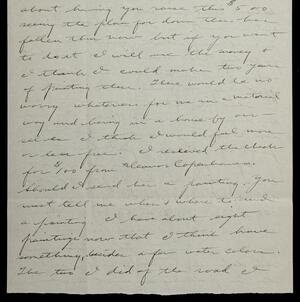 about having you raise this $500.
seeing the place for down the has
fallen thru now but if you want
to do it I will use the money &
I think I could make two years
of painting there. There would be no
worry whatever for me in a material
way and being in a house by our-
selves I think I would feel more
or less free. I received the check
for $100 from Eleanor Copenhaver.
Should I send her a painting. You
must tell me when & where to send
a painting. I have about eight
paintings now that I think have
something, besides a few water colors.
The two I did of the road I